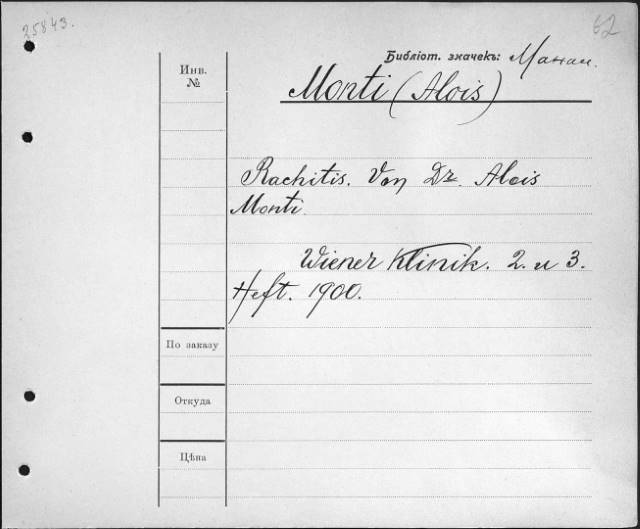 25843.
62
Библіот. значекъ: Манаи.
Инв.
№
Monti (Alois)
Rachitis. Von Dr. Alois
Monti.
Wiener Klinik. 2. u 3.
Heft. 1900.
По заказу
Откуда
Цѣна